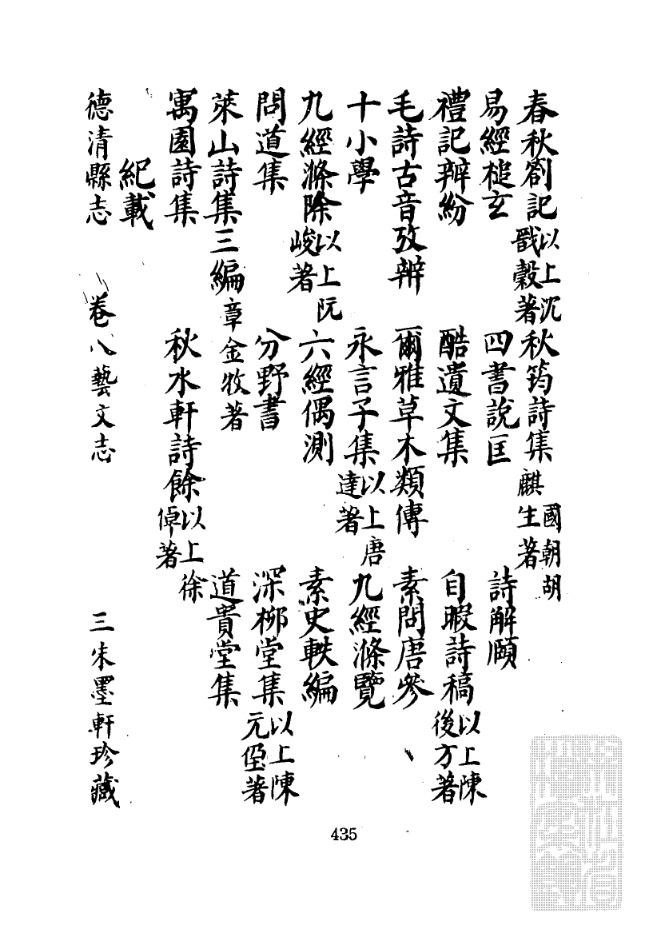 春秋劄記以上沈戩穀著 秋筠詩集國朝胡麒生著
易經槌玄 四書說匡 詩解頤
禮記辨紛 酷遺文集 自暇詩稿以上陳後方著
毛詩古音攷辨 爾雅草木類傳 素問唐參
十小學 永言子集以上唐達著 九經滌覽
九經滌除以上阮峻著 六經偶測 素史軼編
問道集 分野書 深柳堂集以上陳元著
萊山詩集三編章金牧著 道貴堂集
寓園詩集 秋水軒詩餘以上徐倬著
紀載
德清縣志 卷八藝文志 三 朱墨軒珍藏
435